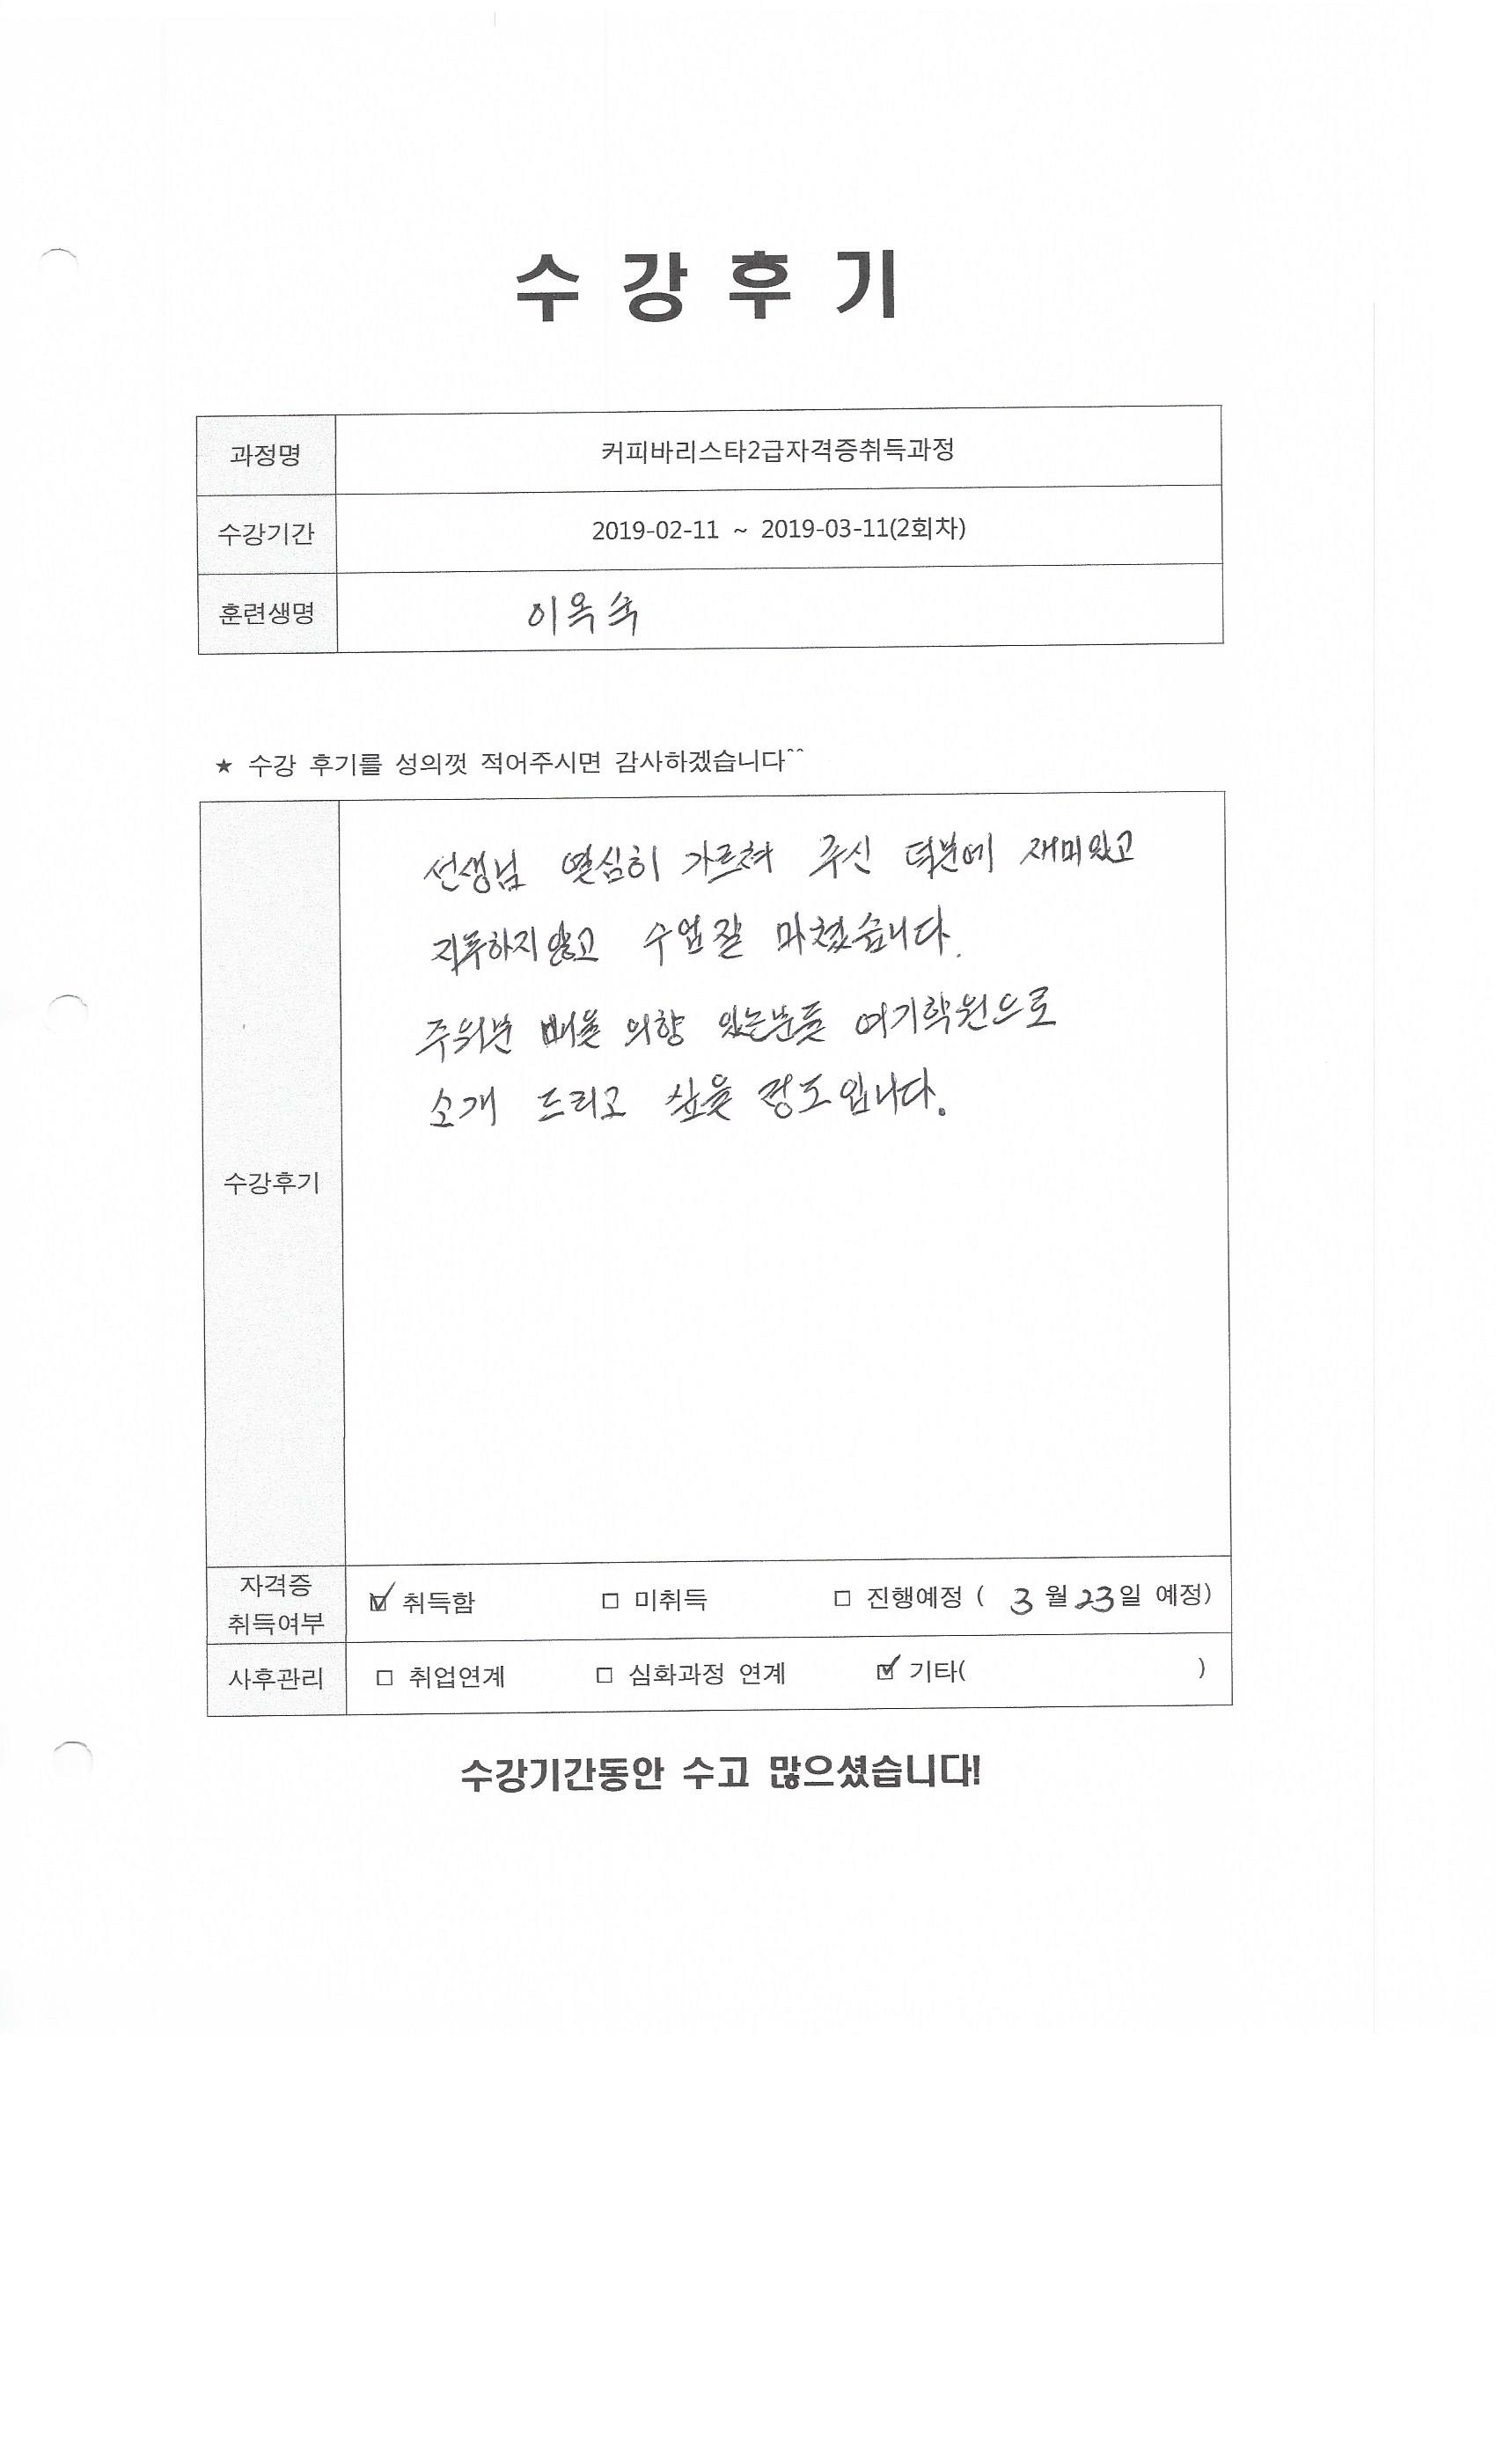 수 강 후 기
과정명 커피바리스타2급자격증취득과정
수강기간 2019-02-11 ~ 2019-03-11(2회차)
훈련생명 이옥숙
★ 수강 후기를 성의껏 적어주시면 감사하겠습니다^^
선생님 열심히 가르쳐 주신 덕분에 재미있고
지루하지않고 수업잘 마쳤습니다.
주위분 배울 의향 있는분들 여기학원으로
소개 드리고 싶을 정도입니다.
수강후기
자격증
취득여부
☑ 취득함 □ 미취득 □ 진행예정 ( 3 월 23일 예정)
사후관리 □ 취업연계 □ 심화과정 연계 ☑ 기타( )
수강기간동안 수고 많으셨습니다!